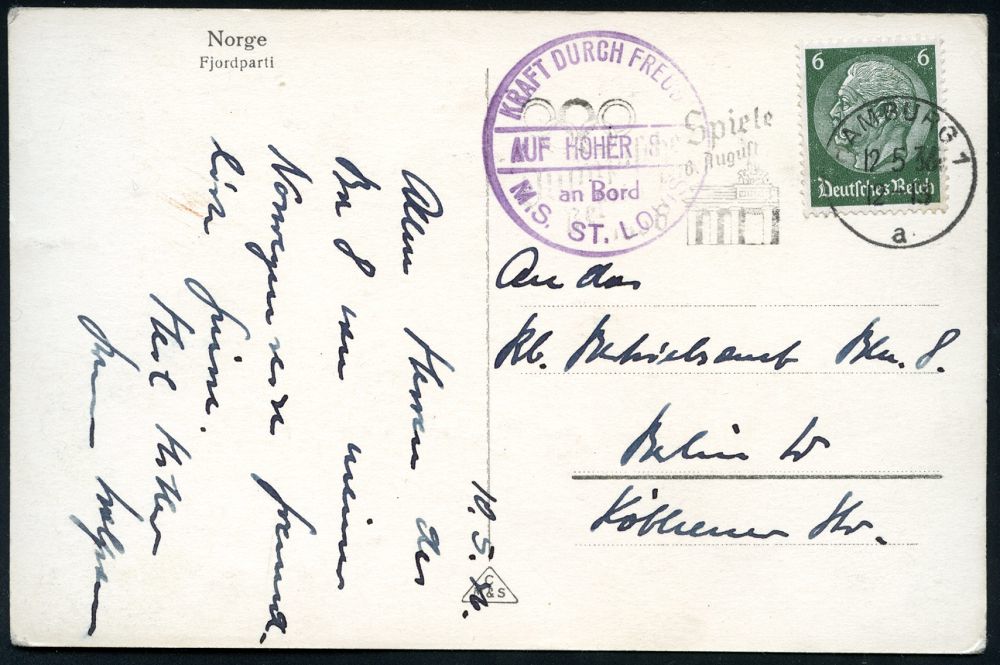 Norge
Fjordparti
KRAFT DURCH FREUD
AUF HOHER S
an Bord
M.S. ST. LOUIS
Spiele
August
6 6
Deutsches Reich
HAMBURG 1
12.5.36
a
Allen Herren des
Ba 8 von meiner
Norwegenreise freund
liche Grüsse.
Heil Hitler
10.5.36.
C
&S
An das
Betriebsamt Bln. 8.
Berlin W
Köthener Str.